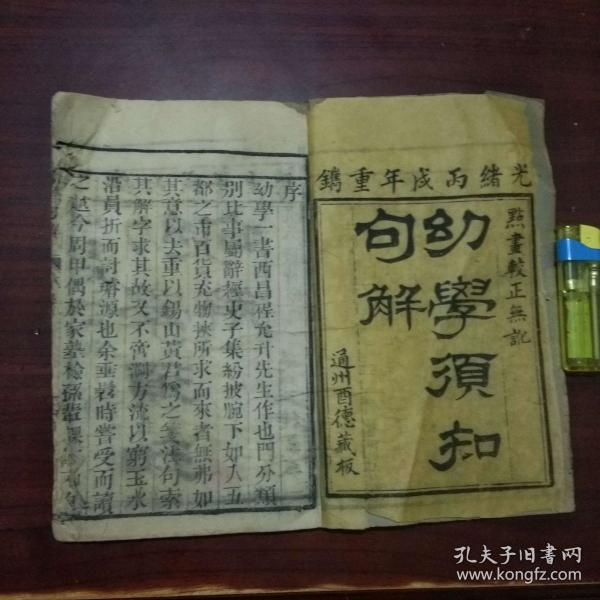 光緒丙戌年重鐫
點畫較正無訛
幼學須知
句解
通州酉德藏板
序
幼學一書西昌程允升先生作也門分類
別比事屬辭經史子集紛披腕下如入五
都之市百貨充物挾所求而來者無弗如
其意以去重以錫山黃君爲之箋法句索
其解字求其故又不啻溯方流以窮玉水
沿員折而討璿源也余垂髫時嘗受而讀
之迄今周甲偶於家塾檢孫輩課
孔夫子旧书网
www.kongfz.com